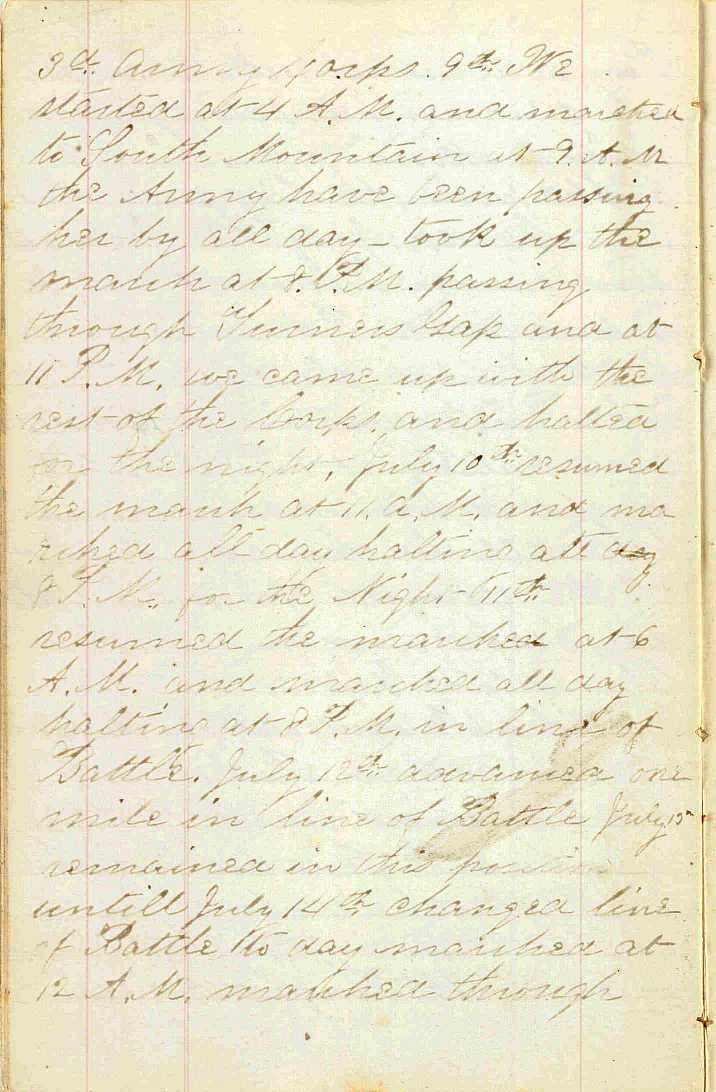 3d. Army Corps. 9th. We
started at 4 A.M. and marched
to South Mountain at 9. A.M
the Army have been passing
her by all day – took up the
march at 8. P.M. passing
through Turners Gap and at
11 P.M. we came up with the
rest of the Corps. and halted
for the night. July 10th resumed
the march at 11. A.M. and ma
rched all day halting att day
8 P.M. for the Night 11th
resumed the marched at 6
A.M. and marched all day
halting at 8 P.M. in line of
Battle. July 12th advanced one
mile in line of Battle July 13th
remained in this position
untill July 14th changed line
of Battle to day marched at
12 A.M. marched through